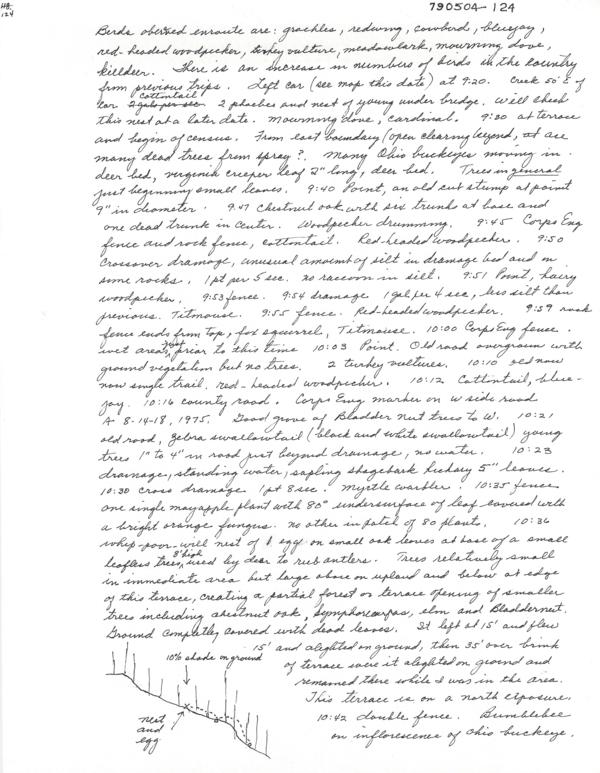 HB
124
790504-124
Birds observed enroute are: grackles, redwing, cowbird, bluejay,
red-headed woodpecker, turkey vulture, meadowlark, mourning dove,
killdeer. There is an increase in numbers of birds in the country
from previous trips. Left car (see map this date) at 9:20. Creek 50' E of
car 2 gals per sec. cottontail 2 phoebes and nest of young under bridge. Will check
this nest at a later date. Mourning dove, cardinal. 9:30 at terrace
and begin of census. From east boundary (open clearing beyond, are
many dead trees from spray?. Many Ohio buckeyes moving in.
deer bed, virginia creeper leaf 2" long, deer bed. Trees in general
just beginning small leaves. 9:40 Point, an old cut stump at point
9" in diameter. 9:47 Chestnut oak with six trunks at base and
one dead trunk in center. Woodpecker drumming. 9:45 Corps Eng
fence and rock fence, cottontail. Red-headed woodpecker. 9:50
Crossover drainage, unusual amount of silt in drainage bed and on
some rocks. 1 pt per 5 sec. no raccoon in silt. 9:51 Point, hairy
woodpecker. 9:53 fence. 9:54 drainage 1 gal per 4 sec, less silt than
previous. Titmouse. 9:55 fence. Red-headed woodpecker. 9:59 rock
fence ends from top, fox squirrel, Titmouse. 10:00 Corps Eng fence.
wet areas just prior to this time 10:03 Point. Old road overgrown with
ground vegetation but no trees. 2 turkey vultures. 10:10 old now
now single trail. red-headed woodpecker. 10:12 Cottontail, blue-
jay. 10:16 county road. Corps Eng marker on W side road
A- 8-14-18, 1975. Good grove of Bladder nut trees to W. 10:21
old road, zebra swallowtail (black and white swallowtail) young
trees 1" to 4" in road just beyond drainage, no water. 10:23
drainage, standing water, sapling shagbark hickory 5" leaves.
10:30 Cross drainage 1 pt 8 sec. Myrtle warbler. 10:35 fence
one single mayapple plant with 80% undersurface of leaf covered with
a bright orange fungus. no other in patch of 80 plants. 10:36
whip-poor-will nest of 1 egg on small oak leaves at base of a small
leafless tree, 8' high used by deer to rub antlers. Trees relatively small
in immediate area but large above on upland and below at edge
of this terrace, creating a partial forest on terrace opening of smaller
trees including chestnut oak, Symphoricarpos, elm and Bladdernut.
Ground completely covered with dead leaves. It left at 15' and flew
15' and alighted on ground, then 35' over brink
of terrace were it alighted on ground and
remained there while I was in the area.
This terrace is on a north exposure.
10:42 double fence. Bumblebee
on inflorescence of Ohio buckeye.
10% shade on ground
nest
and
egg